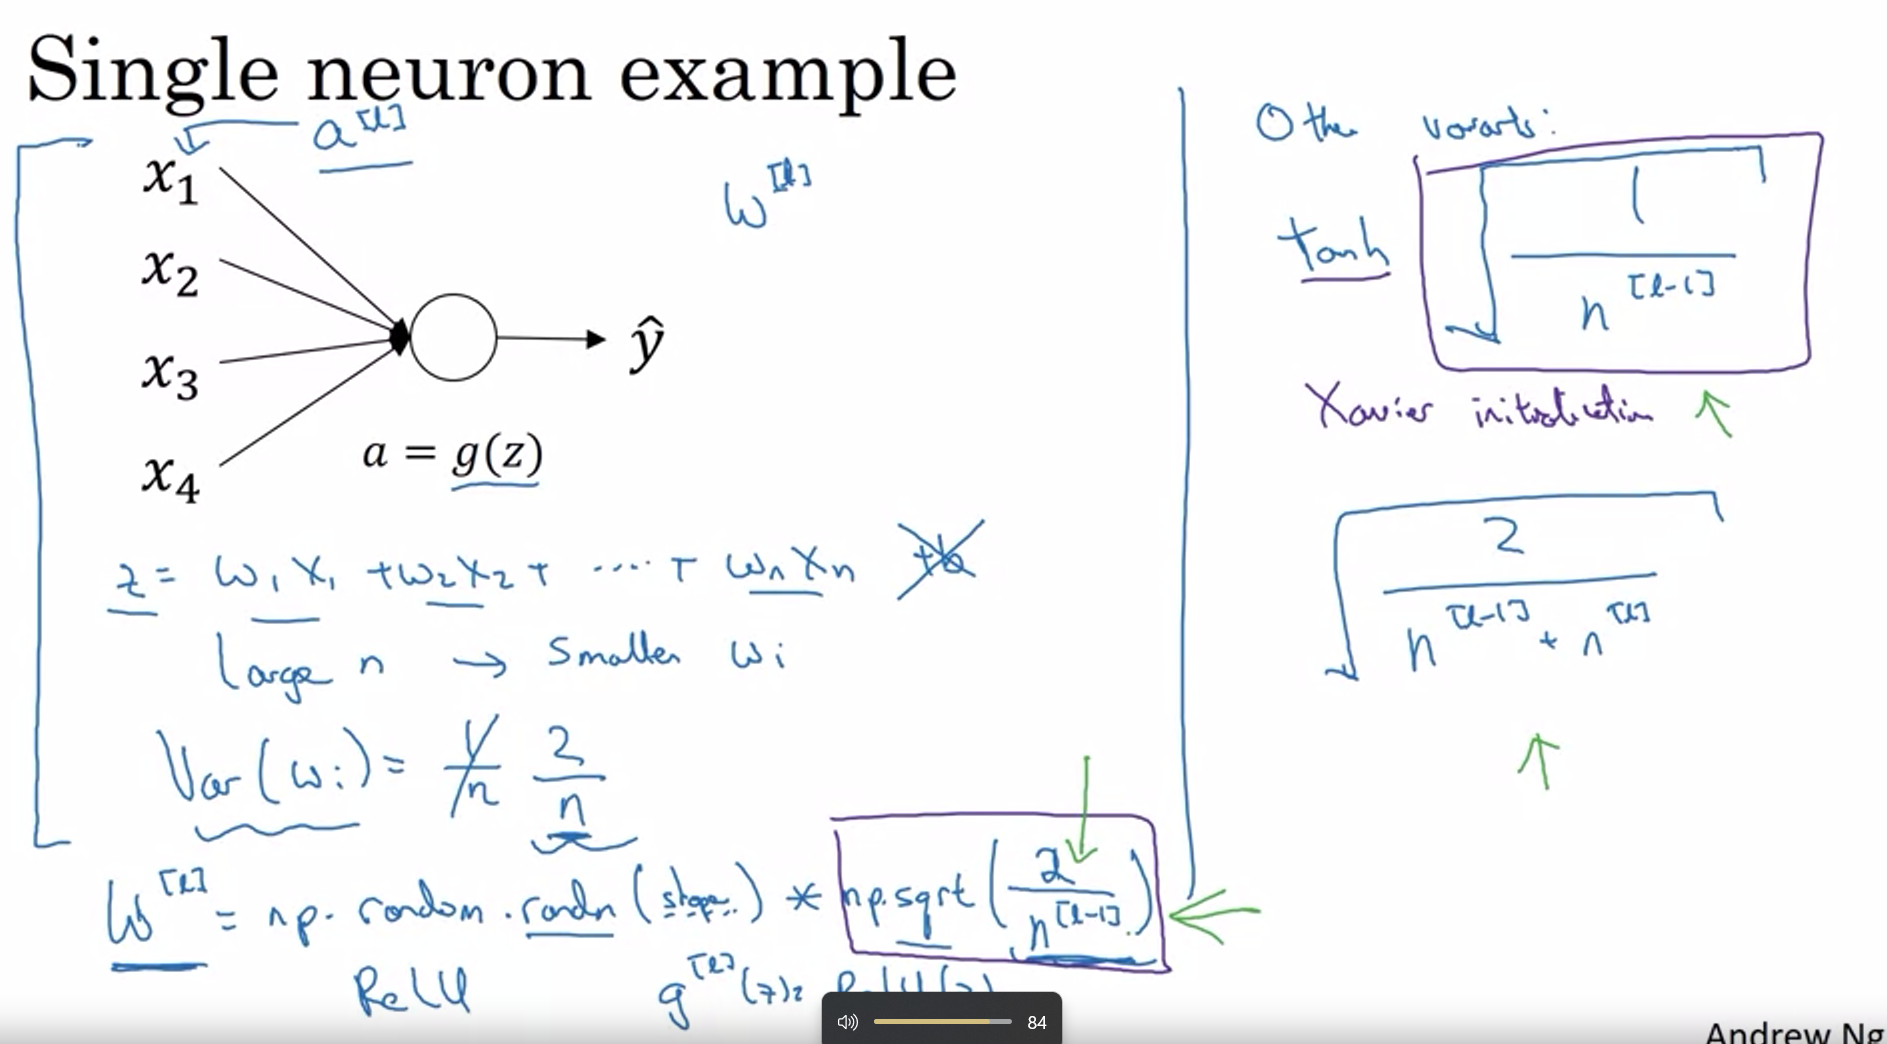 Single neuron example
a^[l]
x₁
x₂
x₃
x₄
ŷ
a = g(z)
W^[l]
z = w₁x₁ + w₂x₂ + ..... + wₙxₙ +b
Large n → Smaller wᵢ
Var(wᵢ) = 1/n 2/n
W^[l] = np.random.randn(shape..) * np.sqrt(2/n^[l-1])
ReLU g^[l](z) = ReLU(z)
Other variants:
tanh √(1/n^[l-1])
Xavier initialization
√(2/(n^[l-1] + n^[l]))
84
Andrew Ng